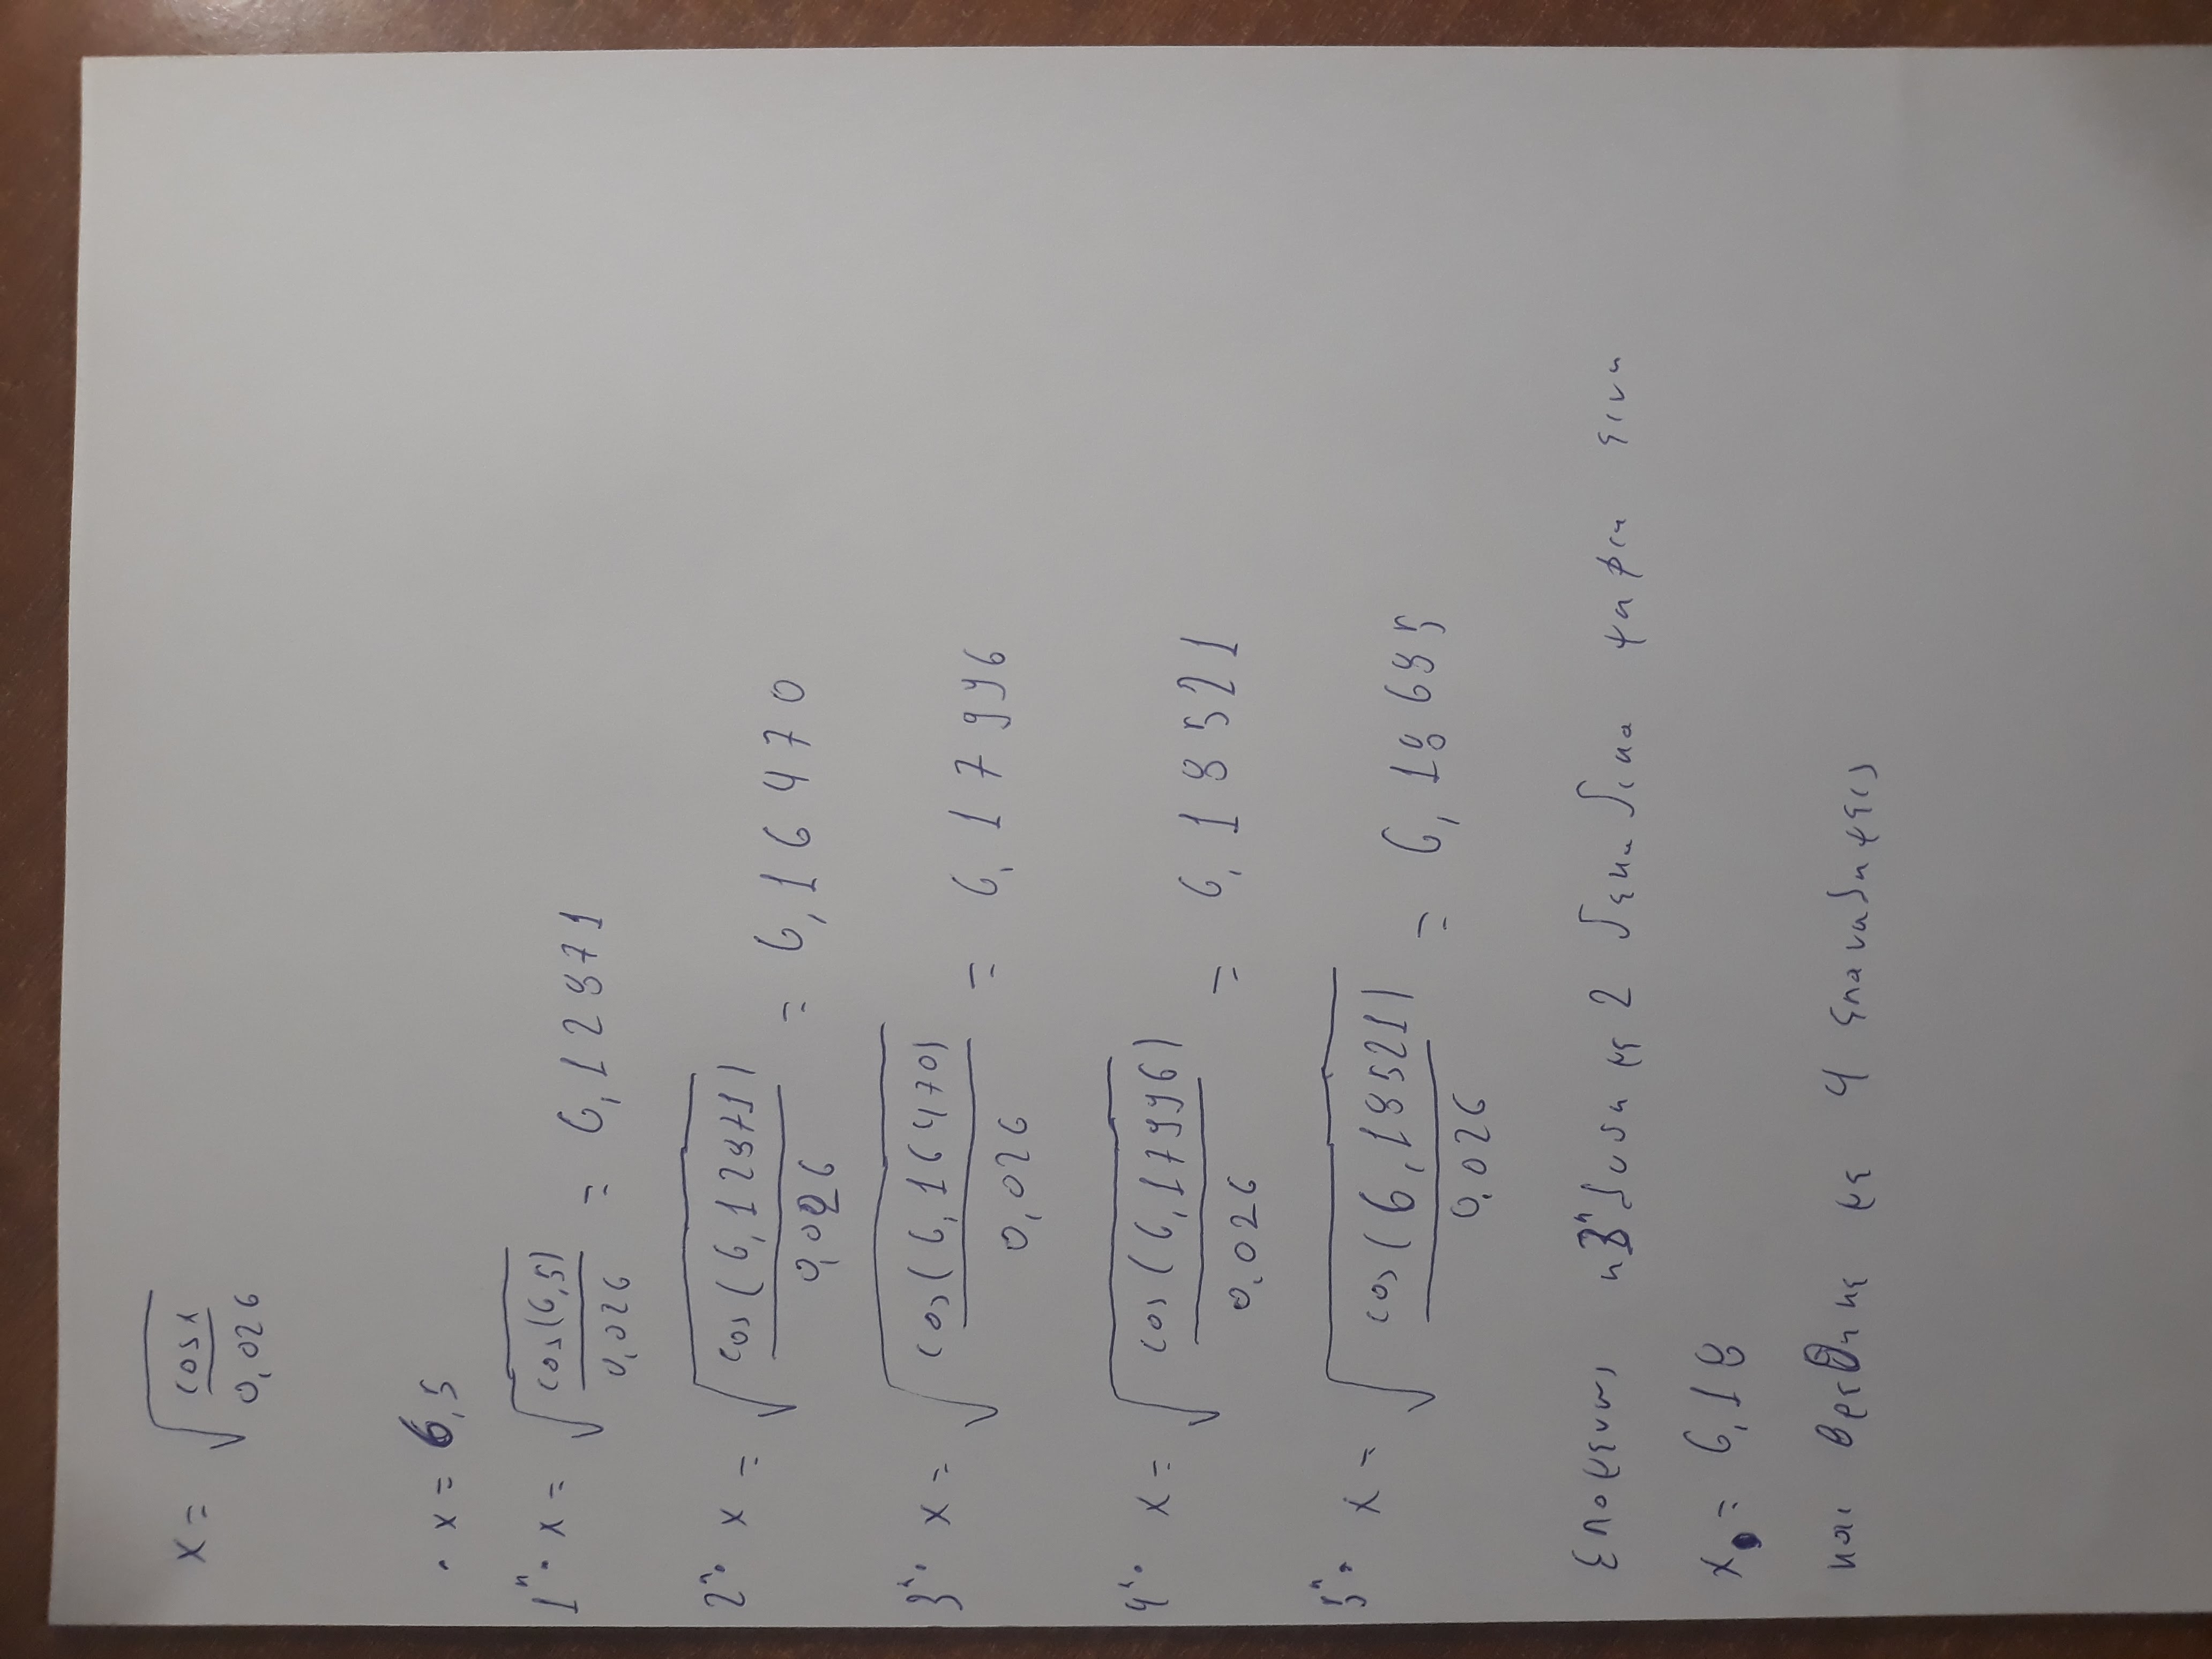 x = √(cosx / 0,026)
· x = 6,5
1η· x = √(cos(6,5) / 0,026) = 6,12871
2η· x = √(cos(6,12871) / 0,026) = 6,16470
3η· x = √(cos(6,16470) / 0,026) = 6,17996
4η· x = √(cos(6,17996) / 0,026) = 6,18521
5η· x = √(cos(6,18521) / 0,026) = 6,18685
Επομενως η 3η λυση με 2 δεκαδικα ψηφια ειναι
x = 6,18
και βρεθηκε με 4 επαναληψεις